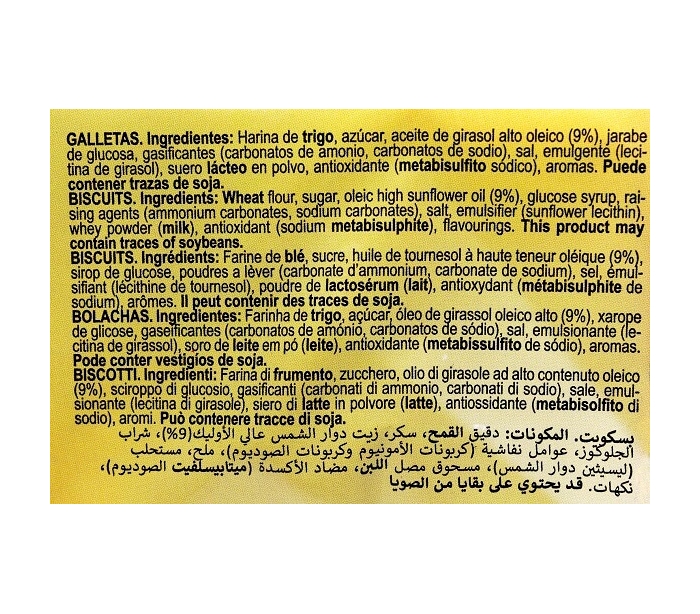 GALLETAS. Ingredientes: Harina de trigo, azúcar, aceite de girasol alto oleico (9%), jarabe
de glucosa, gasificantes (carbonatos de amonio, carbonatos de sodio), sal, emulgente (leci-
tina de girasol), suero lácteo en polvo, antioxidante (metabisulfito sódico), aromas. Puede
contener trazas de soja.
BISCUITS. Ingredients: Wheat flour, sugar, oleic high sunflower oil (9%), glucose syrup, rai-
sing agents (ammonium carbonates, sodium carbonates), salt, emulsifier (sunflower lecithin),
whey powder (milk), antioxidant (sodium metabisulphite), flavourings. This product may
contain traces of soybeans.
BISCUITS. Ingrédients: Farine de blé, sucre, huile de tournesol à haute teneur oléique (9%),
sirop de glucose, poudres a lèver (carbonate d'ammonium, carbonate de sodium), sel, émul-
sifiant (lécithine de tournesol), poudre de lactosérum (lait), antioxydant (métabisulphite de
sodium), arômes. Il peut contenir des traces de soja.
BOLACHAS. Ingredientes: Farinha de trigo, açúcar, óleo de girassol oleico alto (9%), xarope
de glicose, gaseificantes (carbonatos de amónio, carbonatos de sódio), sal, emulsionante (le-
citina de girassol), soro de leite em pó (leite), antioxidante (metabissulfito de sódio), aromas.
Pode conter vestigios de soja.
BISCOTTI. Ingredienti: Farina di frumento, zucchero, olio di girasole ad alto contenuto oleico
(9%), sciroppo di glucosio, gasificanti (carbonati di ammonio, carbonati di sodio), sale, emul-
sionante (lecitina di girasole), siero di latte in polvore (latte), antiossidante (metabisolfito di
sodio), aromi. Può contenere tracce di soja.
بسكويت. المكونات: دقيق القمح، سكر، زيت دوار الشمس عالي الأوليك(9%)، شراب
الجلوكوز، عوامل نفاشية (كربونات الأمونيوم وكربونات الصوديوم)، ملح، مستحلب
(ليسيثين دوار الشمس)، مسحوق مصل اللبن، مضاد الأكسدة (ميتابيسلفيت الصوديوم)،
نكهات. قد يحتوي على بقايا من الصويا